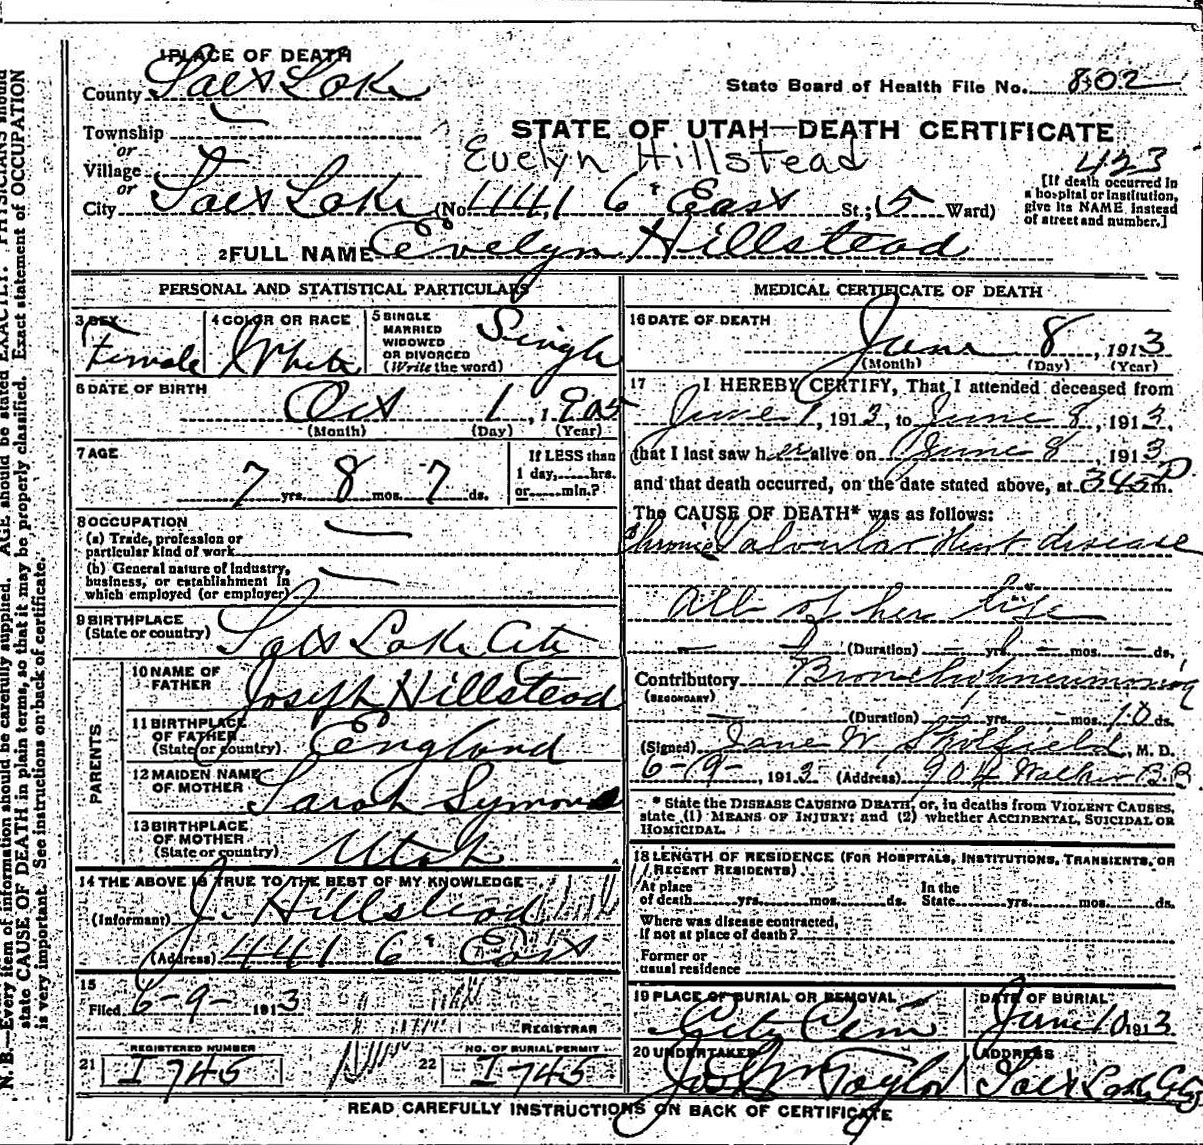 1 PLACE OF DEATH
County Salt Lake
State Board of Health File No. 802
Township
or
Village
or
STATE OF UTAH—DEATH CERTIFICATE
Evelyn Hillstead
423
City Salt Lake (No. 441 6" East St.; 5 Ward)
[If death occurred in
a hospital or institution,
give its NAME instead
of street and number.]
2 FULL NAME Evelyn Hillstead
PERSONAL AND STATISTICAL PARTICULARS
3 SEX
Female
4 COLOR OR RACE
White
5 SINGLE
MARRIED
WIDOWED
OR DIVORCED
(Write the word)
Single
6 DATE OF BIRTH
Oct 1, 1905
(Month) (Day) (Year)
7 AGE
7 yrs. 8 mos. 7 ds.
If LESS than
1 day, hrs.
or min.?
8 OCCUPATION
(a) Trade, profession or
particular kind of work
(b) General nature of industry,
business, or establishment in
which employed (or employer)
9 BIRTHPLACE
(State or country)
Salt Lake City
PARENTS
10 NAME OF
FATHER
Joseph Hillstead
11 BIRTHPLACE
OF FATHER
(State or country)
England
12 MAIDEN NAME
OF MOTHER
Sarah Symons
13 BIRTHPLACE
OF MOTHER
(State or country)
Utah
14 THE ABOVE IS TRUE TO THE BEST OF MY KNOWLEDGE
(Informant) J. Hillstead
(Address) 441 6" East
15
Filed 6-9- 1913
REGISTRAR
21 REGISTERED NUMBER
I 745
22 NO. OF BURIAL PERMIT
I 745
MEDICAL CERTIFICATE OF DEATH
16 DATE OF DEATH
June 8, 1913
(Month) (Day) (Year)
17 I HEREBY CERTIFY, That I attended deceased from
June 1, 1913, to June 8, 1913,
that I last saw her alive on June 8, 1913
and that death occurred, on the date stated above, at 345 P m.
The CAUSE OF DEATH* was as follows:
Chronic Valvular Heart disease
All of her life
(Duration) — yrs. — mos. — ds.
Contributory Bronchopneumonia
(SECONDARY)
(Duration) yrs. — mos. 10 ds.
(Signed) Jane W. Skolfield, M. D.
6-9- 1913 (Address) 904 Walker B.B
* State the DISEASE CAUSING DEATH, or, in deaths from VIOLENT CAUSES,
state (1) MEANS OF INJURY; and (2) whether ACCIDENTAL, SUICIDAL OR
HOMICIDAL.
18 LENGTH OF RESIDENCE (FOR HOSPITALS, INSTITUTIONS, TRANSIENTS, OR
RECENT RESIDENTS)
At place
of death yrs. mos. ds.
In the
State yrs. mos. ds.
Where was disease contracted,
if not at place of death?
Former or
usual residence
19 PLACE OF BURIAL OR REMOVAL
City Cem
DATE OF BURIAL
June 10 1913
20 UNDERTAKER
Jos Wm Taylor
ADDRESS
Salt Lake City
READ CAREFULLY INSTRUCTIONS ON BACK OF CERTIFICATE
N. B.—Every item of information should be carefully supplied. AGE should be stated EXACTLY. PHYSICIANS should
state CAUSE OF DEATH in plain terms, so that it may be properly classified. Exact statement of OCCUPATION
is very important. See instructions on back of certificate.